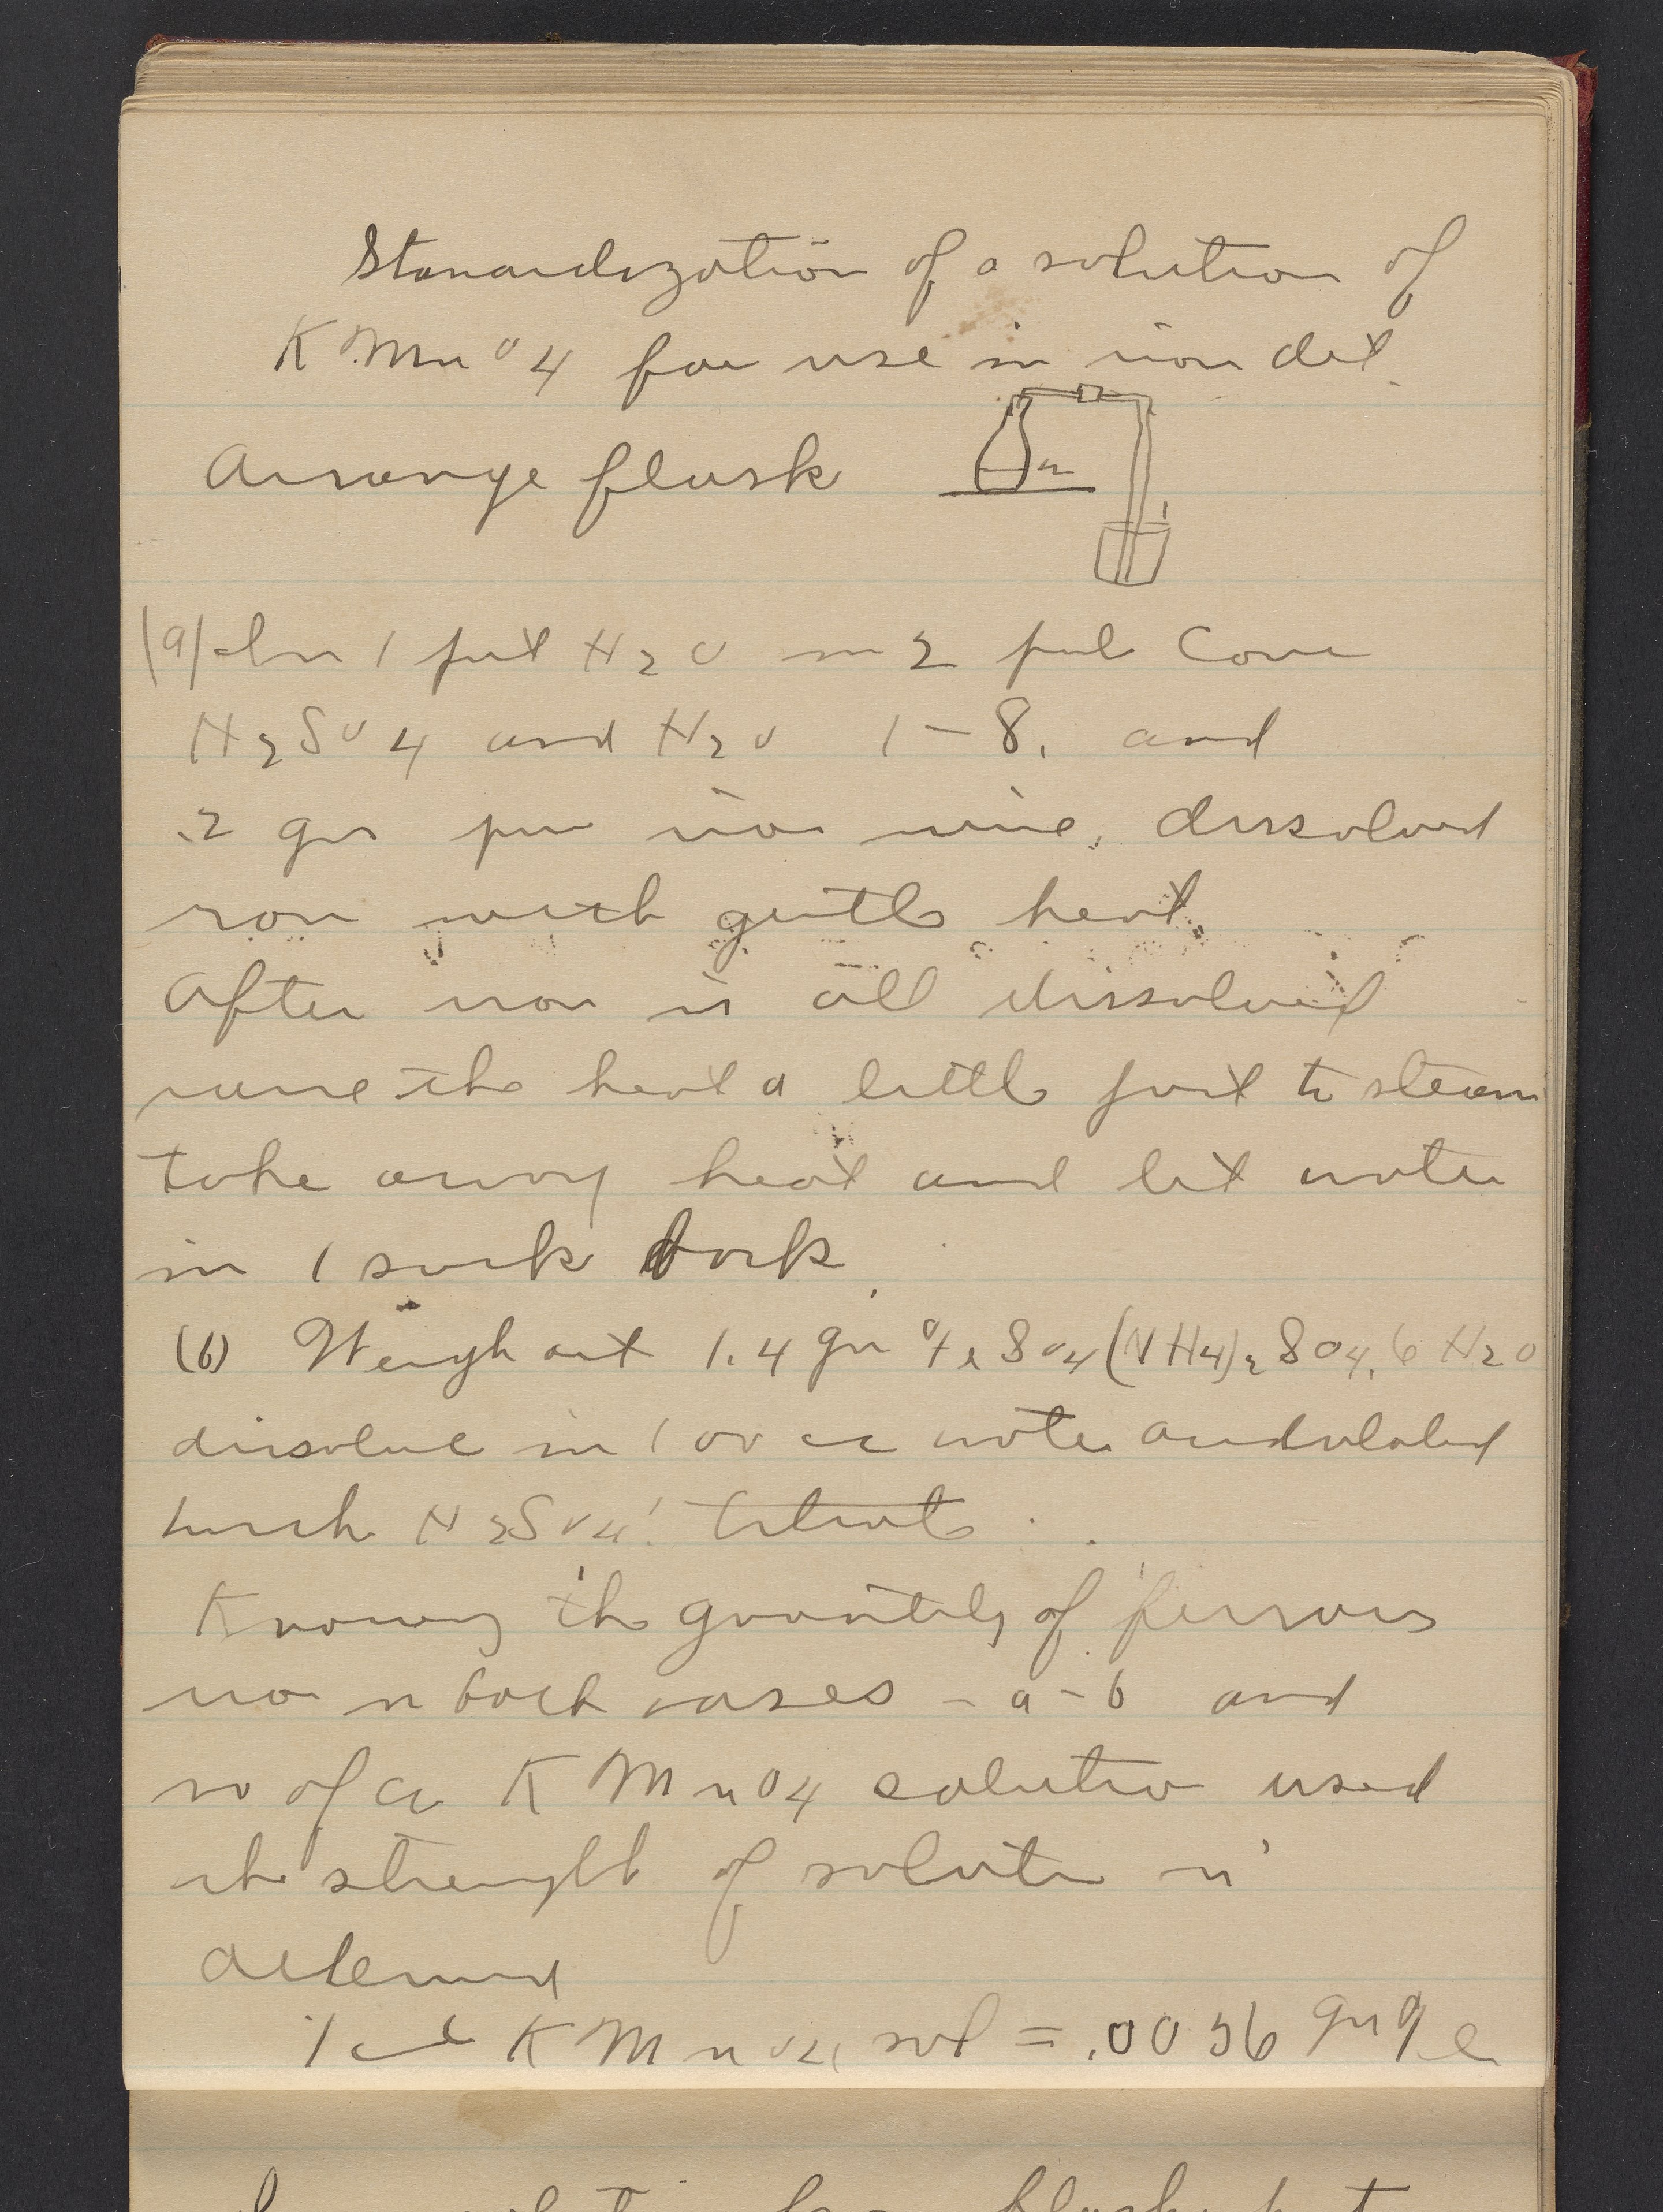 Standardization of a solution of
KMnO4 for use in iron det.
Arrange flask
2
1
(a) In 1 put H2O in 2 put Conc
H2SO4 and H2O 1-8. and
.2 gm pure iron wire, dissolved
iron with gentle heat.
After iron is all dissolved
raise the heat a little just to steam
take away heat and let water
in 1 suck back.
(b) Weigh out 1.4 gm FeSO4(NH4)2SO4.6H2O
dissolve in 100 cc water acidulated
with H2SO4. titrate.
Knowing the quantity of ferrous
iron in both cases - a - b and
no of cc KMnO4 solution used
the strenght of solution is
determined
1 cc KMnO4 sol = .0056 gm Fe